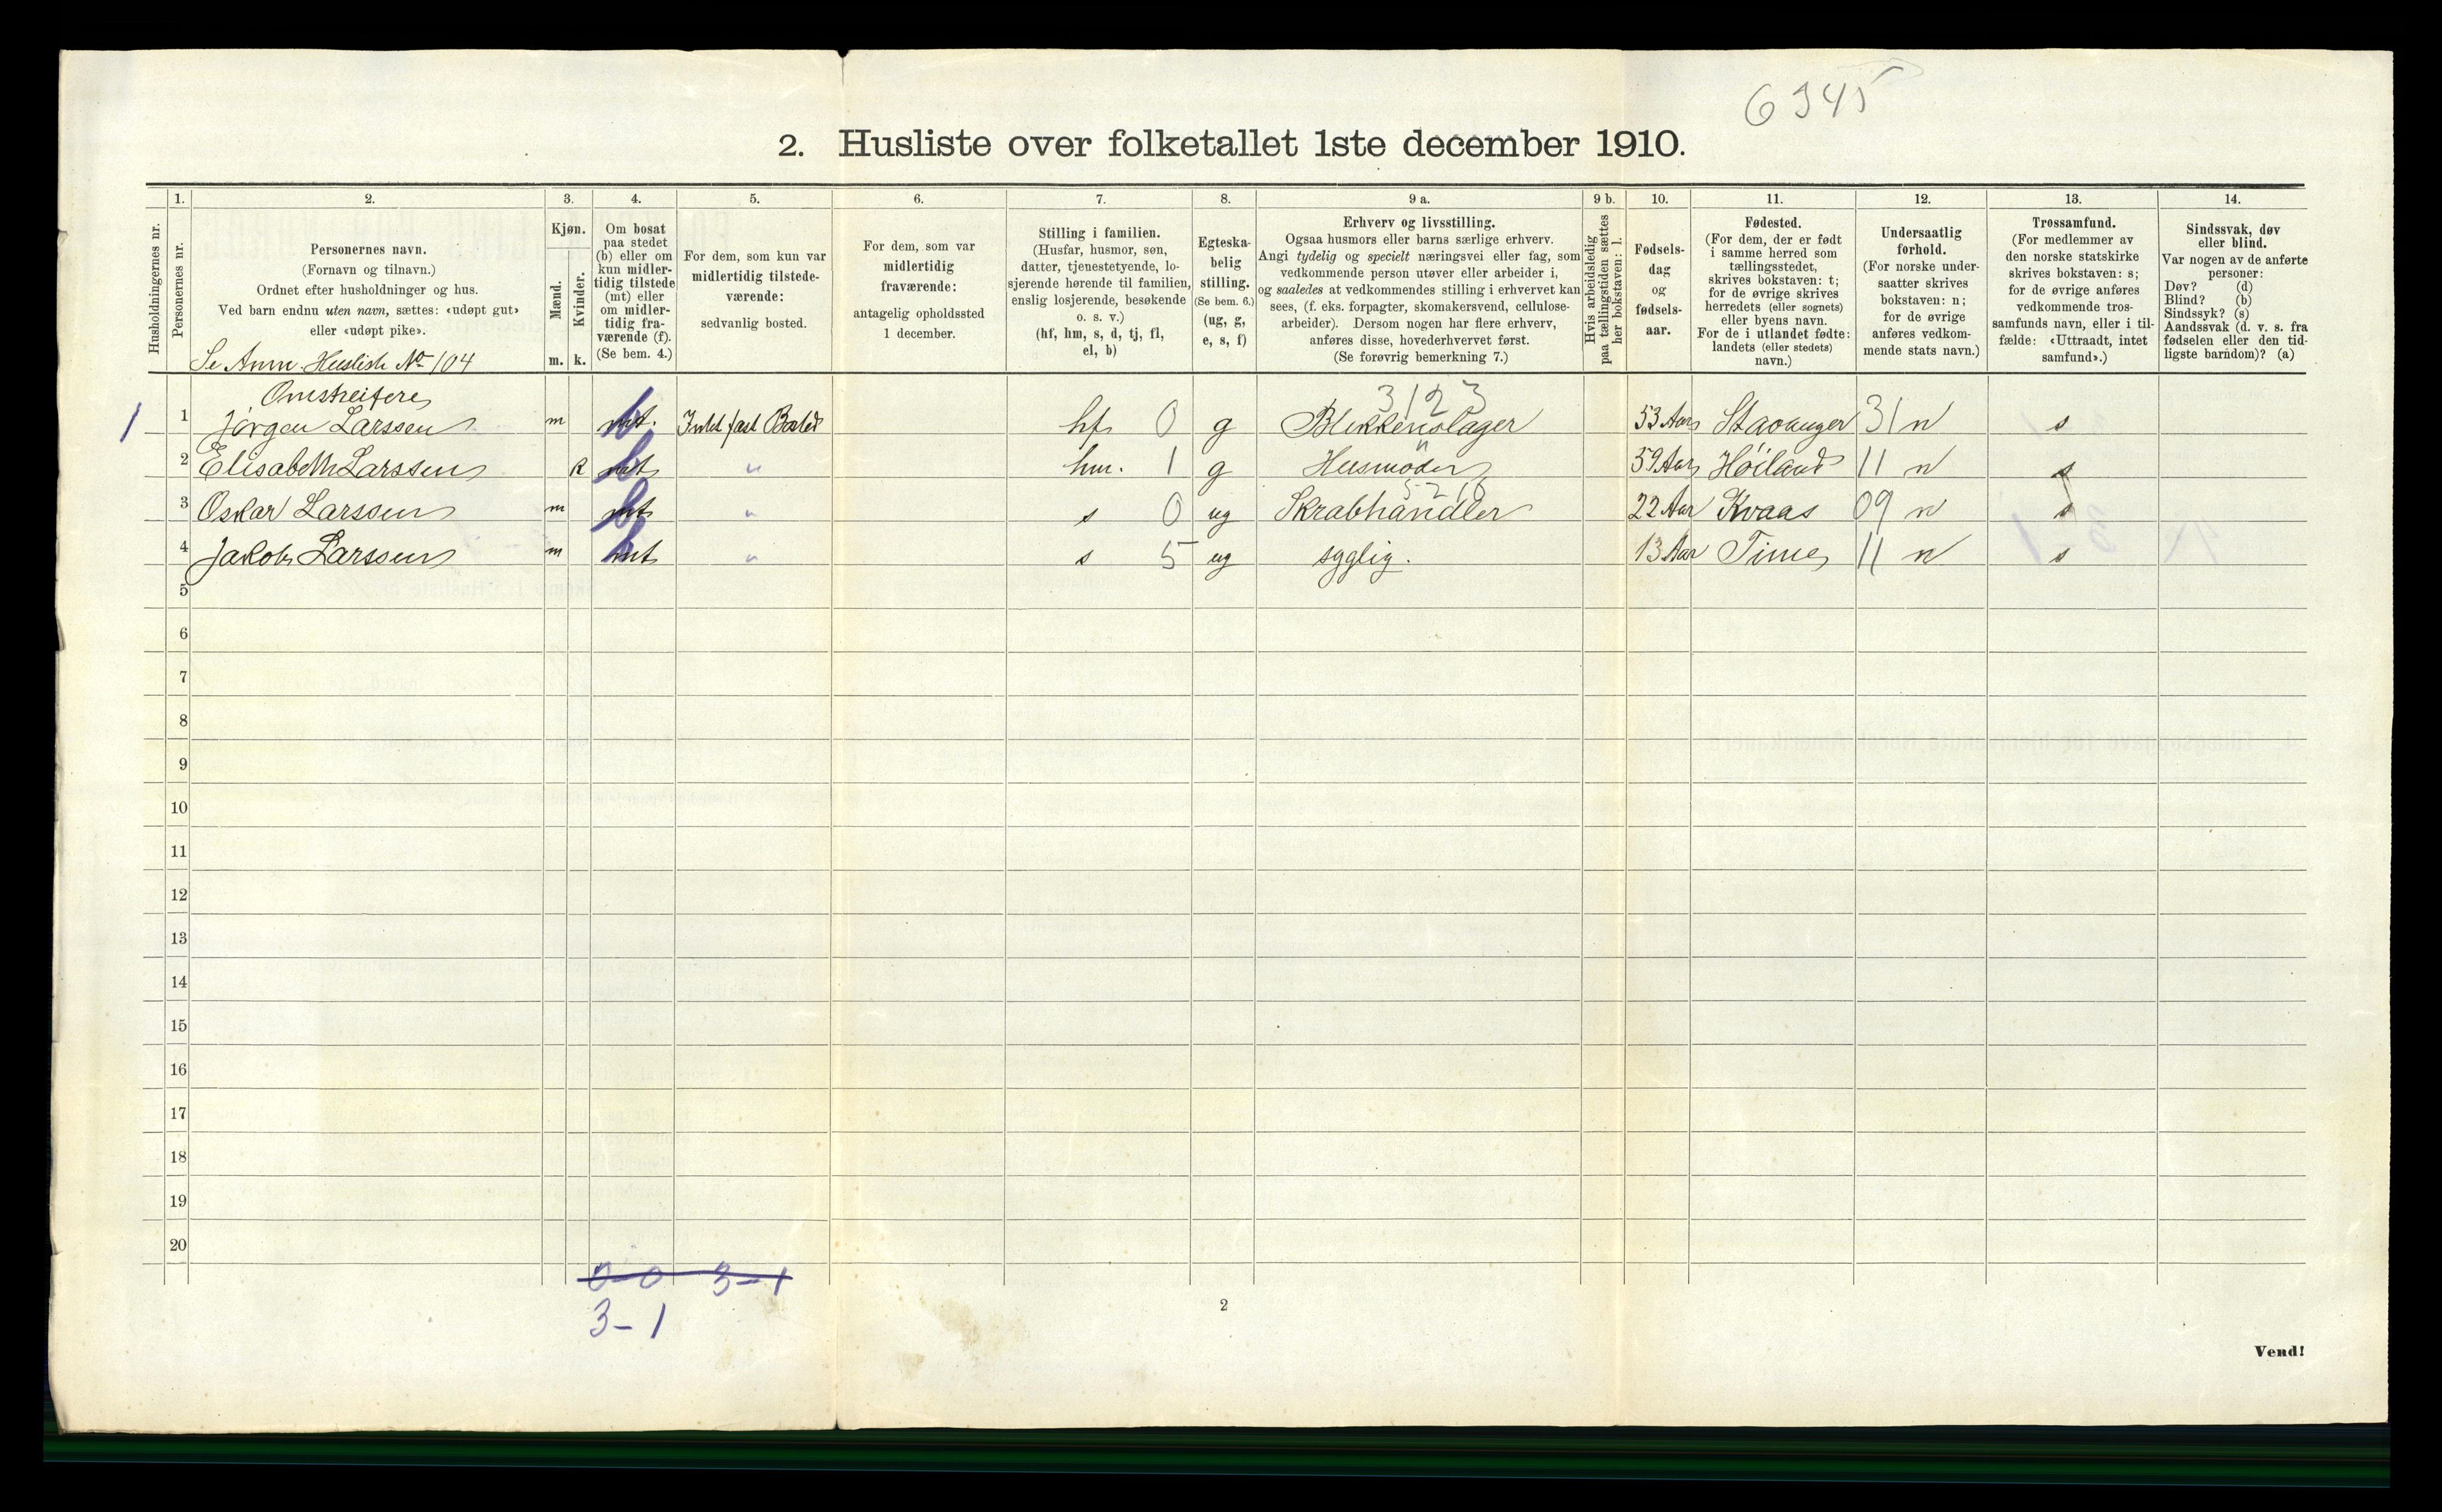 6345
2. Husliste over folketallet 1ste december 1910.
Husholdningernes nr.
1.
Personernes nr.
2.
Personernes navn.
(Fornavn og tilnavn.)
Ordnet efter husholdninger og hus.
Ved barn endnu uten navn, sættes: «udøpt gut»
eller «udøpt pike».
Se Anm. Husliste No 104
3.
Kjøn.
Mænd.
Kvinder.
m. k.
4.
Om bosat
paa stedet
(b) eller om
kun midler-
tidig tilstede
(mt) eller
om midler-
tidig fra-
værende (f).
(Se bem. 4.)
5.
For dem, som kun var
midlertidig tilstede-
værende:
sedvanlig bosted.
6.
For dem, som var
midlertidig
fraværende:
antagelig opholdssted
1 december.
7.
Stilling i familien.
(Husfar, husmor, søn,
datter, tjenestetyende, lo-
sjerende hørende til familien,
enslig losjerende, besøkende
o. s. v.)
(hf, hm, s, d, tj, fl,
el, b)
8.
Egteska-
belig
stilling.
(Se bem. 6.)
(ug, g,
e, s, f)
9 a.
Erhverv og livsstilling.
Ogsaa husmors eller barns særlige erhverv.
Angi tydelig og specielt næringsvei eller fag, som
vedkommende person utøver eller arbeider i,
og saaledes at vedkommendes stilling i erhvervet kan
sees, (f. eks. forpagter, skomakersvend, cellulose-
arbeider). Dersom nogen har flere erhverv,
anføres disse, hovederhvervet først.
(Se forøvrig bemerkning 7.)
9 b.
Hvis arbeidsledig
paa tællingstiden sættes
her bokstaven: l.
10.
Fødsels-
dag
og
fødsels-
aar.
11.
Fødested.
(For dem, der er født
i samme herred som
tællingsstedet,
skrives bokstaven: t;
for de øvrige skrives
herredets (eller sognets)
eller byens navn.
For de i utlandet fødte:
landets (eller stedets)
navn.)
12.
Undersaatlig
forhold.
(For norske under-
saatter skrives
bokstaven: n;
for de øvrige
anføres vedkom-
mende stats navn.)
13.
Trossamfund.
(For medlemmer av
den norske statskirke
skrives bokstaven: s;
for de øvrige anføres
vedkommende tros-
samfunds navn, eller i til-
fælde: «Uttraadt, intet
samfund».)
14.
Sindssvak, døv
eller blind.
Var nogen av de anførte
personer:
Døv? (d)
Blind? (b)
Sindssyk? (s)
Aandssvak (d. v. s. fra
fødselen eller den tid-
ligste barndom)? (a)
Omstreifere 3123
1 1 Jørgen Larssen m mt. b Intet fast Bosted hf 0 g Blikkenslager 53 Aar Stavanger 31 n s
2 Elisabeth Larssen k mt b " hm. 1 g Husmoder " 59 Aar Høiland 11 n s
3 Oskar Larssen m mt b " s 0 ug Skrabhandler 22 Aar Kvaas 09 n s
4 Jakob Larssen m mt b " s 5 ug sygelig. 13 Aar Time 11 n s
5
6
7
8
9
10
11
12
13
14
15
16
17
18
19
20
0-0 3-1
3-1
2
Vend!